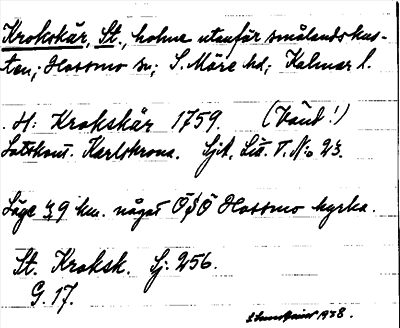 Krokskär, St., holme utanför smålandskus-
ten; Hossmo sn; S. Möre hd; Kalmar l.
H: Krokskär 1759. (Vänd!)
Lotskont. Karlskrona. Sjk. Litt. T. No 23.
Läge 9 km. något ÖSÖ Hossmo kyrka.
St. Kroksk. Sj: 256.
G. 17.
1938.